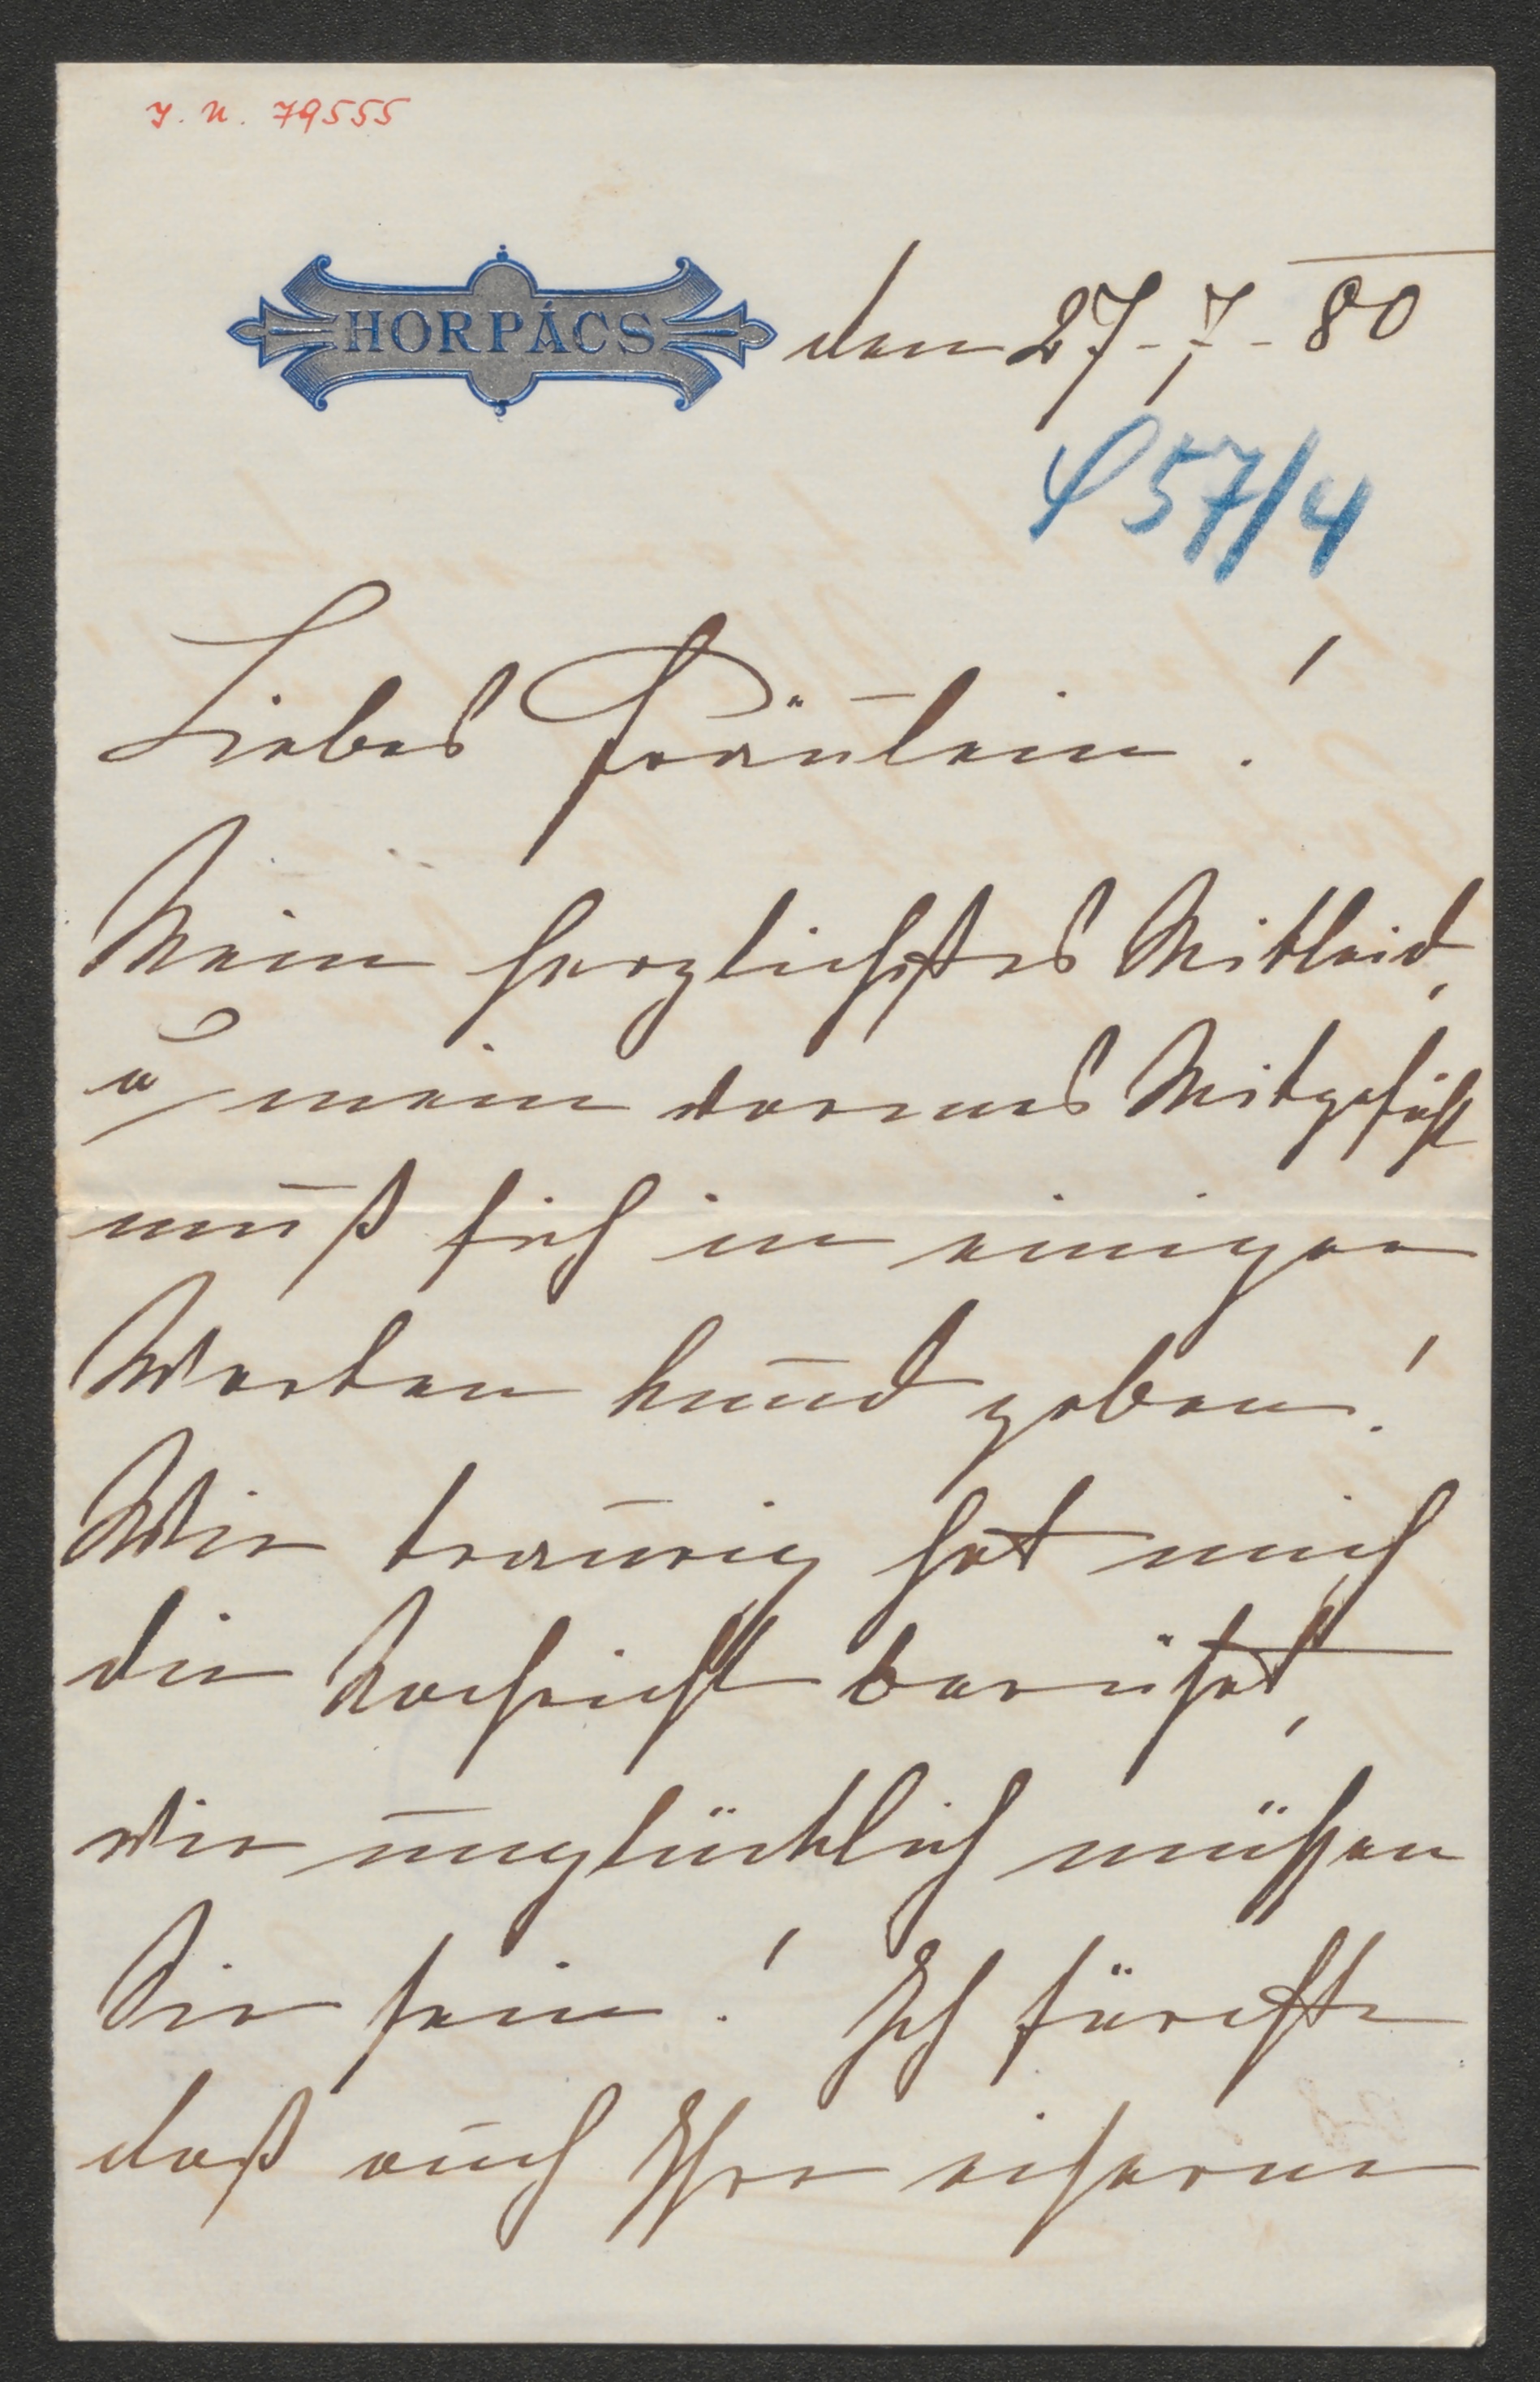 J. N. 79555
HORPÁCS den 27-7-80
57/4
Liebes Fräulein!
Mein herzlichstes Mitleid,
u mein warmes Mitgefühl
muß sich in einigen
Worten kund geben!
Wie traurig hat mich
die Nachricht berührt,
wie unglücklich müssen
Sie sein! Ich fürchte
daß auch Ihre eiserne